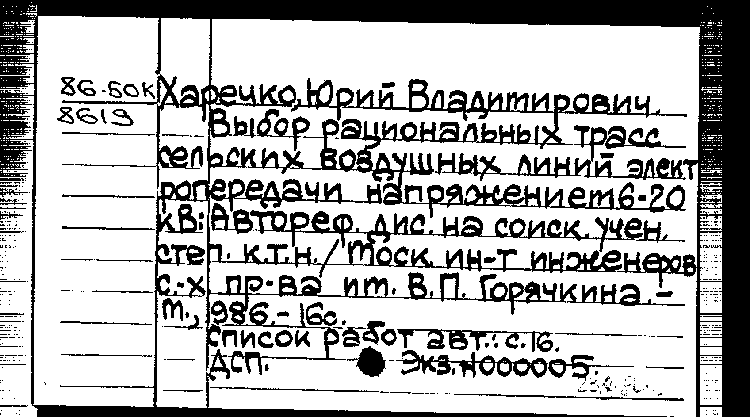 86-50К Харечко, Юрий Владимирович.
8619 Выбор рациональных трасс
сельских воздушных линий элект
ропередачи напряжением 6-20
кВ: Автореф. дис. на соиск. учен.
степ. к.т.н. / Моск. ин-т инженеров
с.-х. пр-ва им. В.П. Горячкина. -
М., 1986. - 16с.
Список работ авт.: с.16.
ДСП. Экз. N000005.